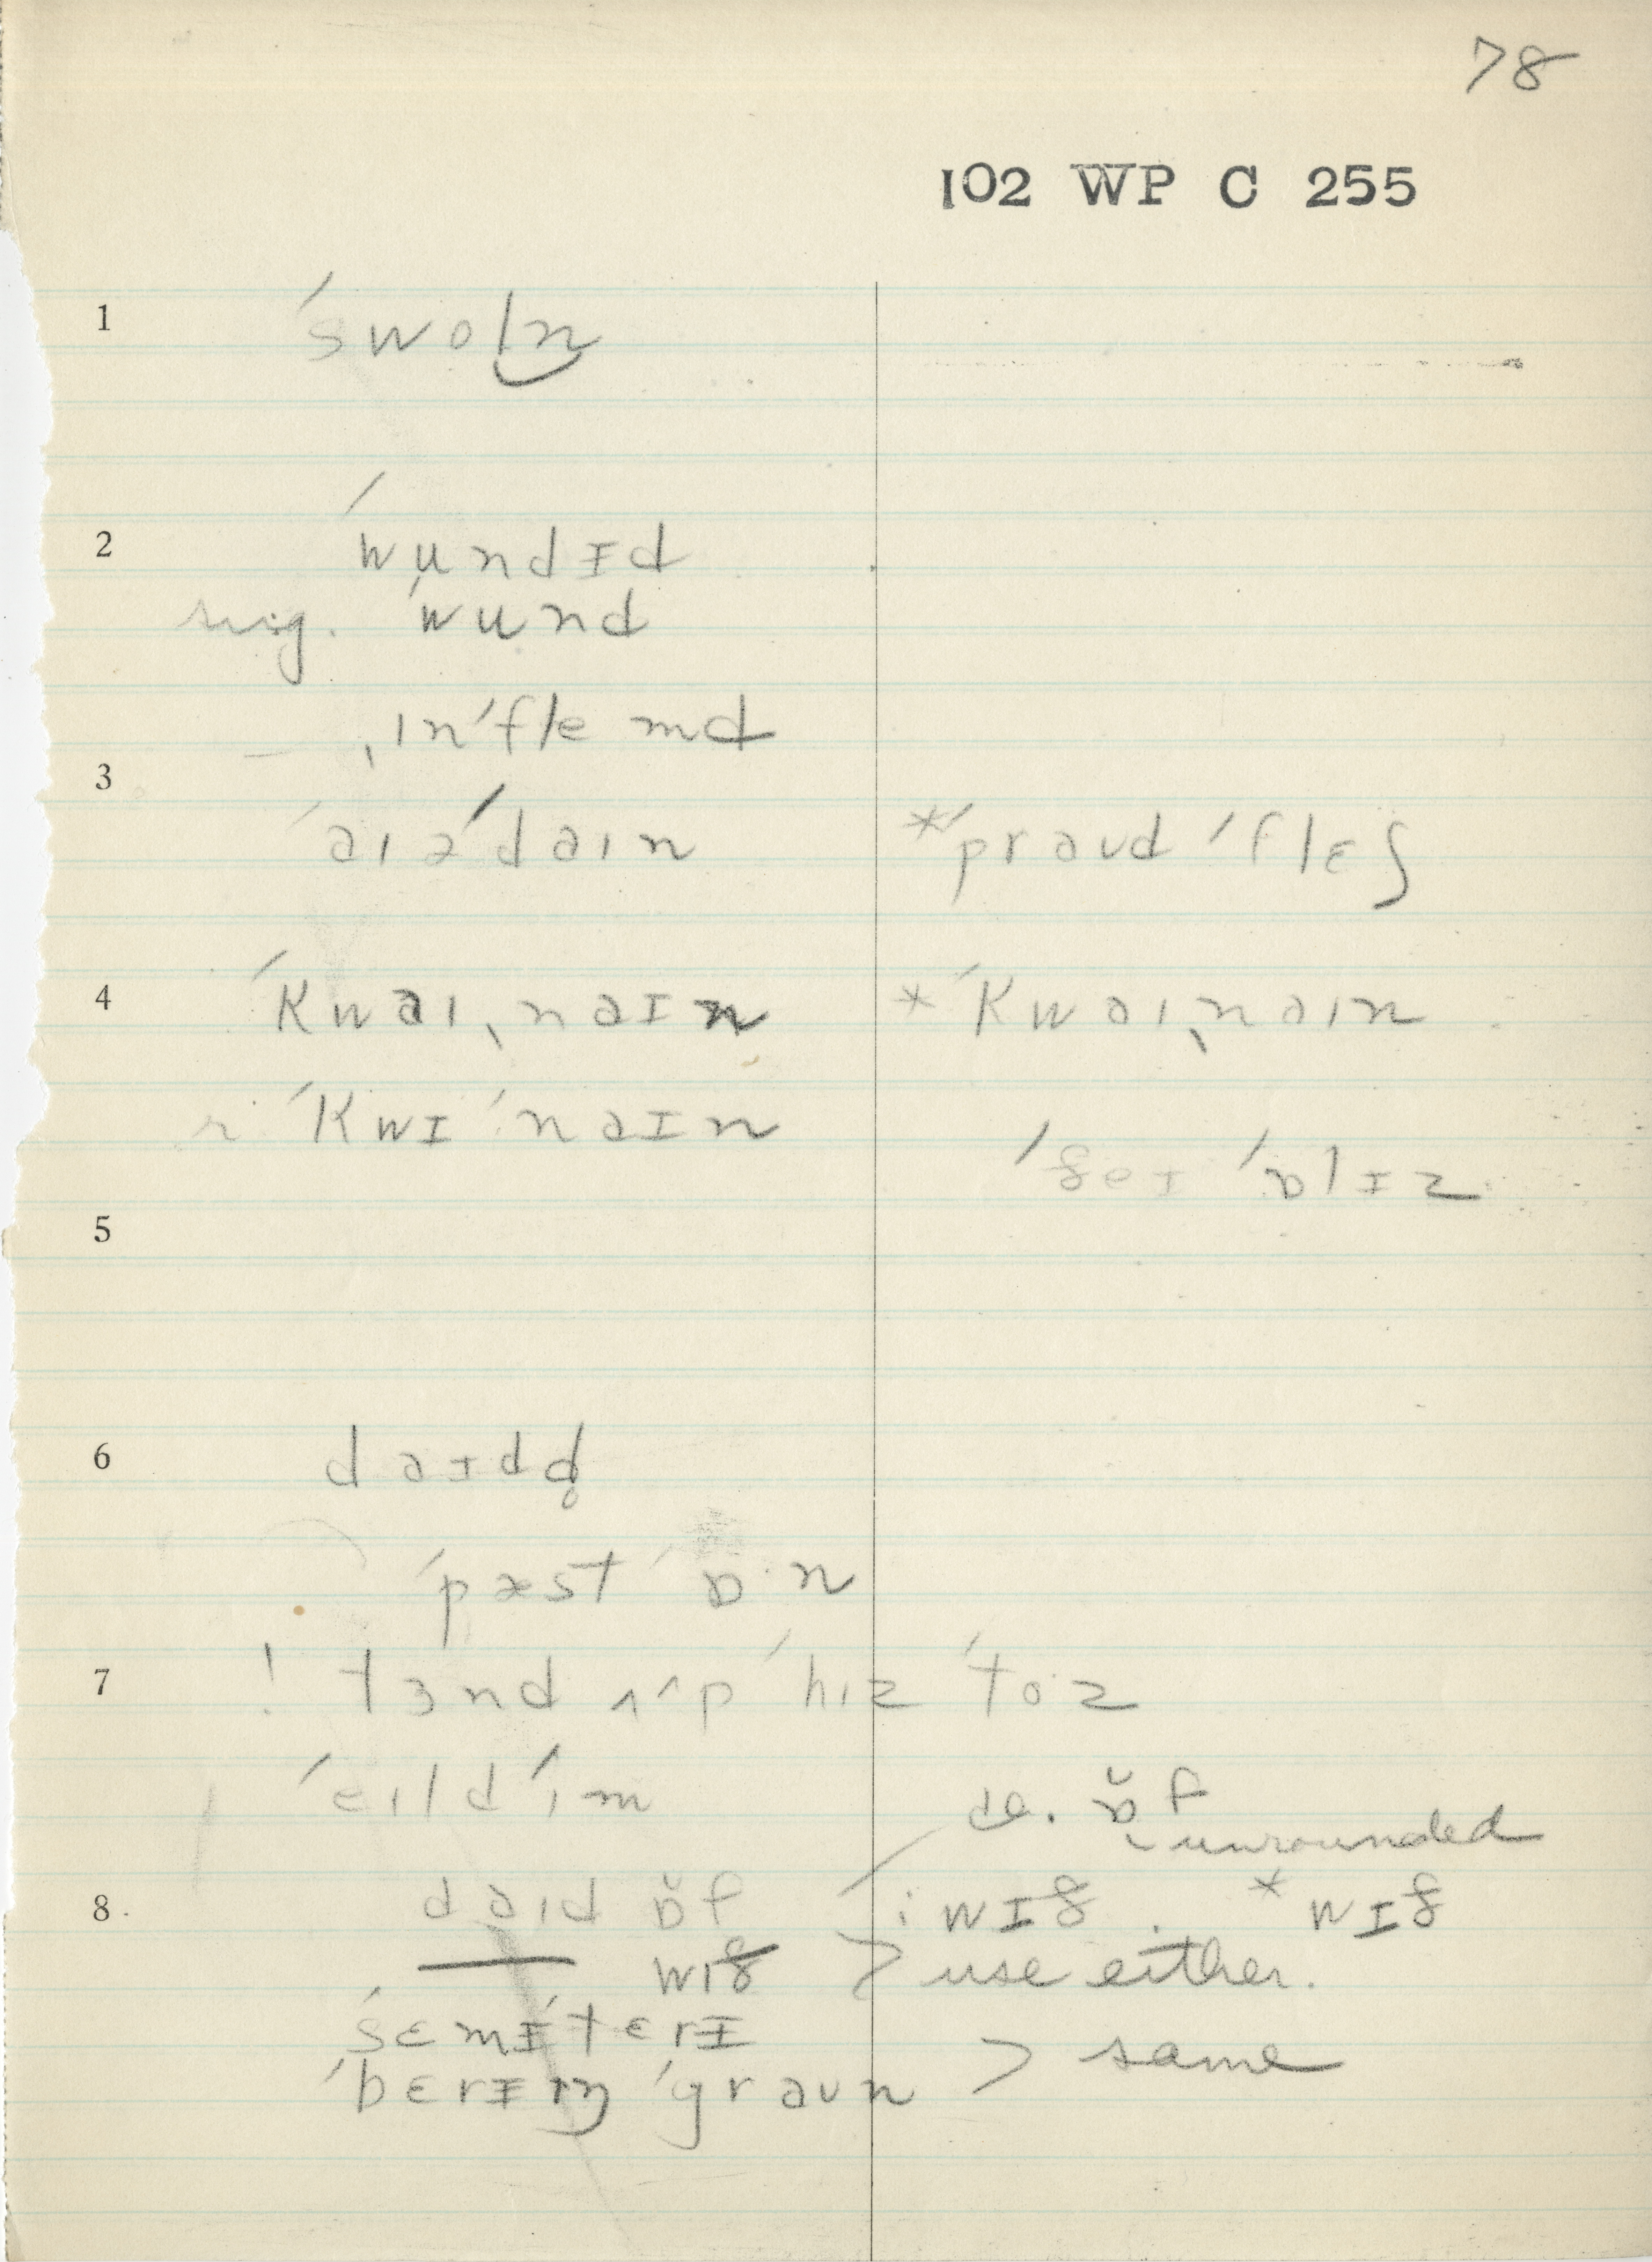 78
102 WP C 255
1 ˈswoln
2 ˈwundɪd
sing. ˈwund
ˌɪnˈflemd
3 ˈaɪəˈdaɪn *ˈpraʊd ˈflɛʃ
4 ˈkwaɪˌnaɪn *ˈkwaɪˌnaɪn
r ˈkwɪˈnaɪn
ˈðeɪ ˈɒlɪz
5
6 daɪdd̥
ˈpæst ˈɒ·n
7 ! tɜnd ʌˈp ˈhɪz ˈto·z
ˈeɪld ˈɪm
de. ɒ̆f
unrounded
8 daɪd ɒ̆f : wɪð . * wɪð
— wɪð > use either.
ˈsɛmɪˈtɛrɪ
ˈbɛrɪɪŋ ˈgraʊn > same